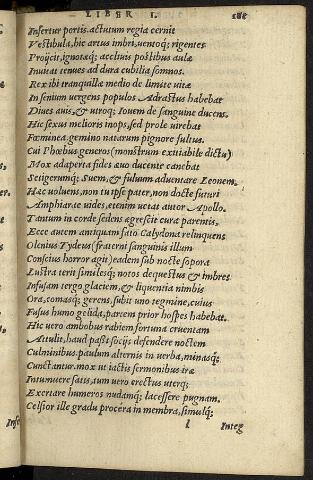 LIBER I.
Infertur portis. actutum regia cernit
Vestibula, hic artus imbri, uentoq; rigentes
Proijcit, ignotaq; accliuis postibus aulæ
Inuitat tenues ad dura cubilia somnos.
Rex ibi tranquillæ medio de limite uitæ
In senium uergens populos Adrastus habebat
Diues auis, & utroq; Iouem de sanguine ducens.
Hic sexus melioris inops, sed prole uirebat
Fœminea, gemino natarum pignore fultus.
Cui Phœbus generos (monstrum exitiabile dictu)
Mox adaperta fides æuo ducente canebat
Setigerumq; Suem, & fuluum aduentare Leonem.
Hæc uoluens, non tu ipse pater, non docte futuri
Amphiarae uides, etenim uetat autor Apollo.
Tantum in corde sedens ægrescit cura parentis,
Ecce autem antiquam fato Calydona relinquens
Olenius Tydeus (fraterni sanguinis illum
Conscius horror agit) eadem sub nocte sopora
Lustra terit, similesq; notos dequestus & imbres
Infusam tergo glaciem, & liquentia nimbis
Ora, comasq; gerens, subit uno tegmine, cuius
Fusus humo gelida, partem prior hospes habebat.
Hic uero ambobus rabiem fortuna cruentam
Attulit, haud passi socijs defendere noctem
Culminibus. paulum alternis in uerba, minasq;
Cunctantur. mox ut iactis sermonibus iræ
Intumuere satis, tum uero erectus uterq;
Exertare humeros nudamq; lacessere pugnam.
Celsior ille gradu procera in membra, simulq;
l Integ